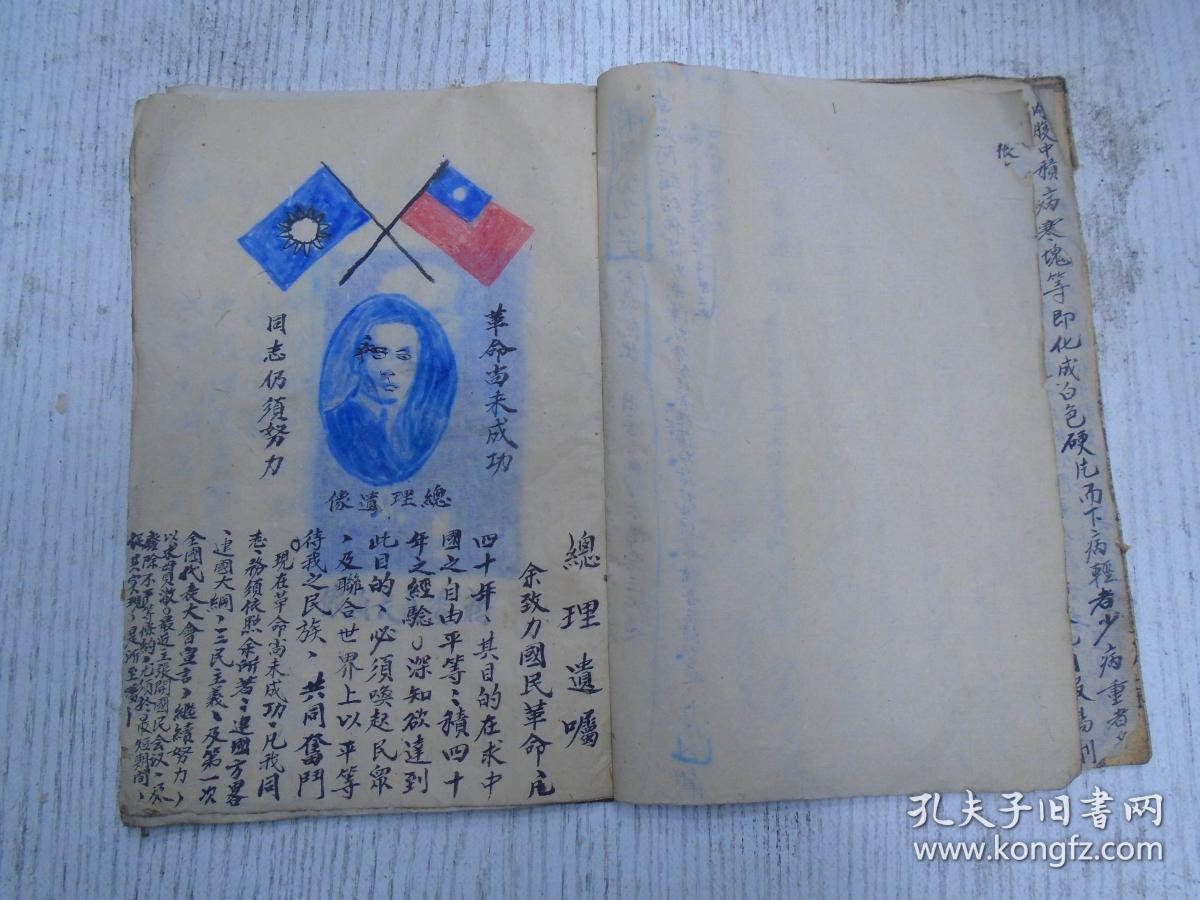 革命尚未成功
同志仍須努力
總理遺像
總理遺囑
余致力國民革命凡
四十年、其目的在求中
國之自由平等、積四十
年之經驗、深知欲達到
此目的、必須喚起民眾
、及聯合世界上以平等
待我之民族、共同奮鬥
現在革命尚未成功、凡我同
志、務須依照余所著、建國方畧
、建國大綱、三民主義、及第一次
全國代表大會宣言、繼續努力、
以求貫澈、最近主張開國民会议、及
廢除不平等條約、尤須於最短期間、
促其实現、是所至要
張
内腹中積病寒塊等即化成白色硬片而下病輕者少病重者多
孔夫子旧書网
www.kongfz.com